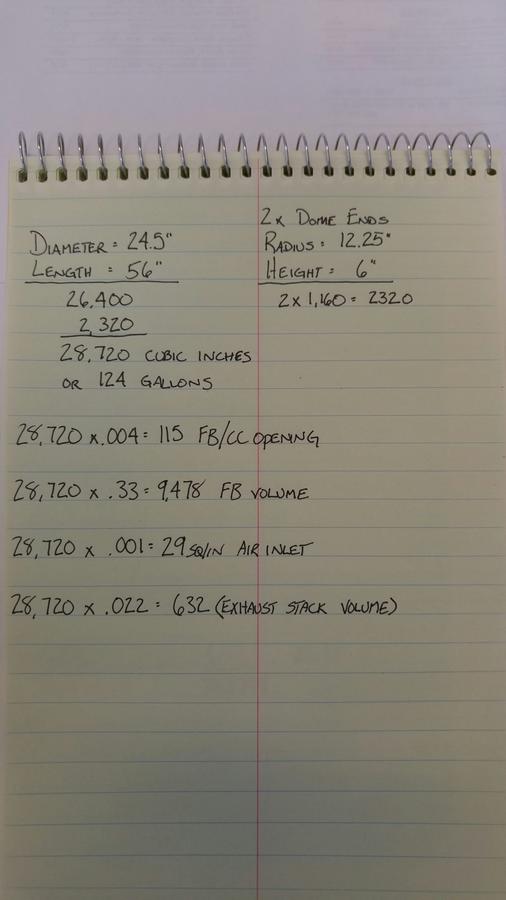 2x Dome Ends
Diameter = 24.5" Radius = 12.25"
Length = 56" Height = 6"
26,400 2 x 1,160 = 2320
2,320
28,720 cubic inches
or 124 gallons
28,720 x .004 = 115 FB/CC opening
28,720 x .33 = 9,478 FB volume
28,720 x .001 = 29 sq/in air inlet
28,720 x .022 = 632 (exhaust stack volume)